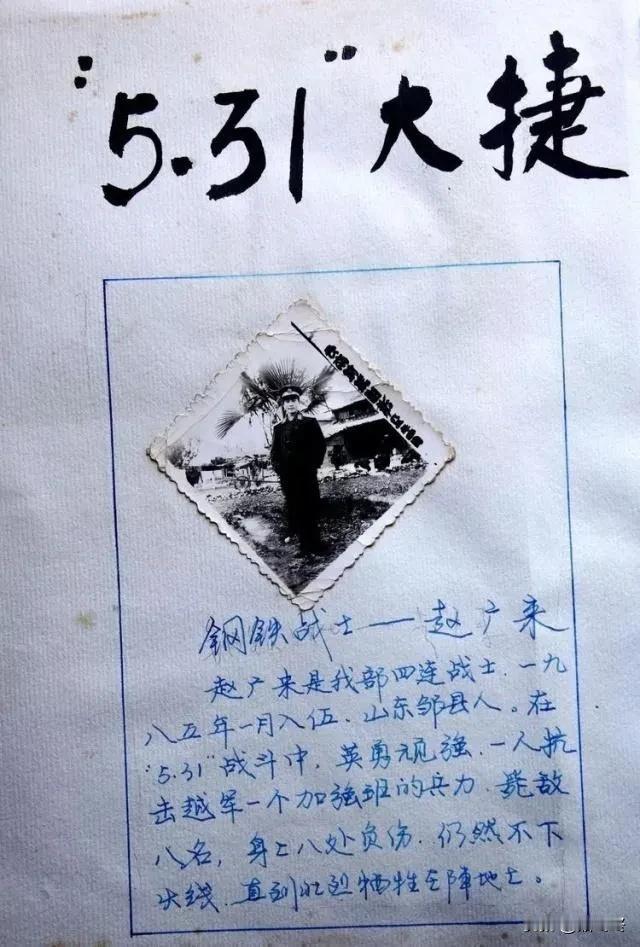 “5.31”大捷
钢铁战士——赵广来
赵广来是我部四连战士.一九
八五年一月入伍.山东邹县人。在
“5.31”战斗中,英勇顽强.一人抗
击越军一个加强班的兵力.毙敌
八名,身上八处负伤.仍然不下
火线.直到壮烈牺牲在阵地上。